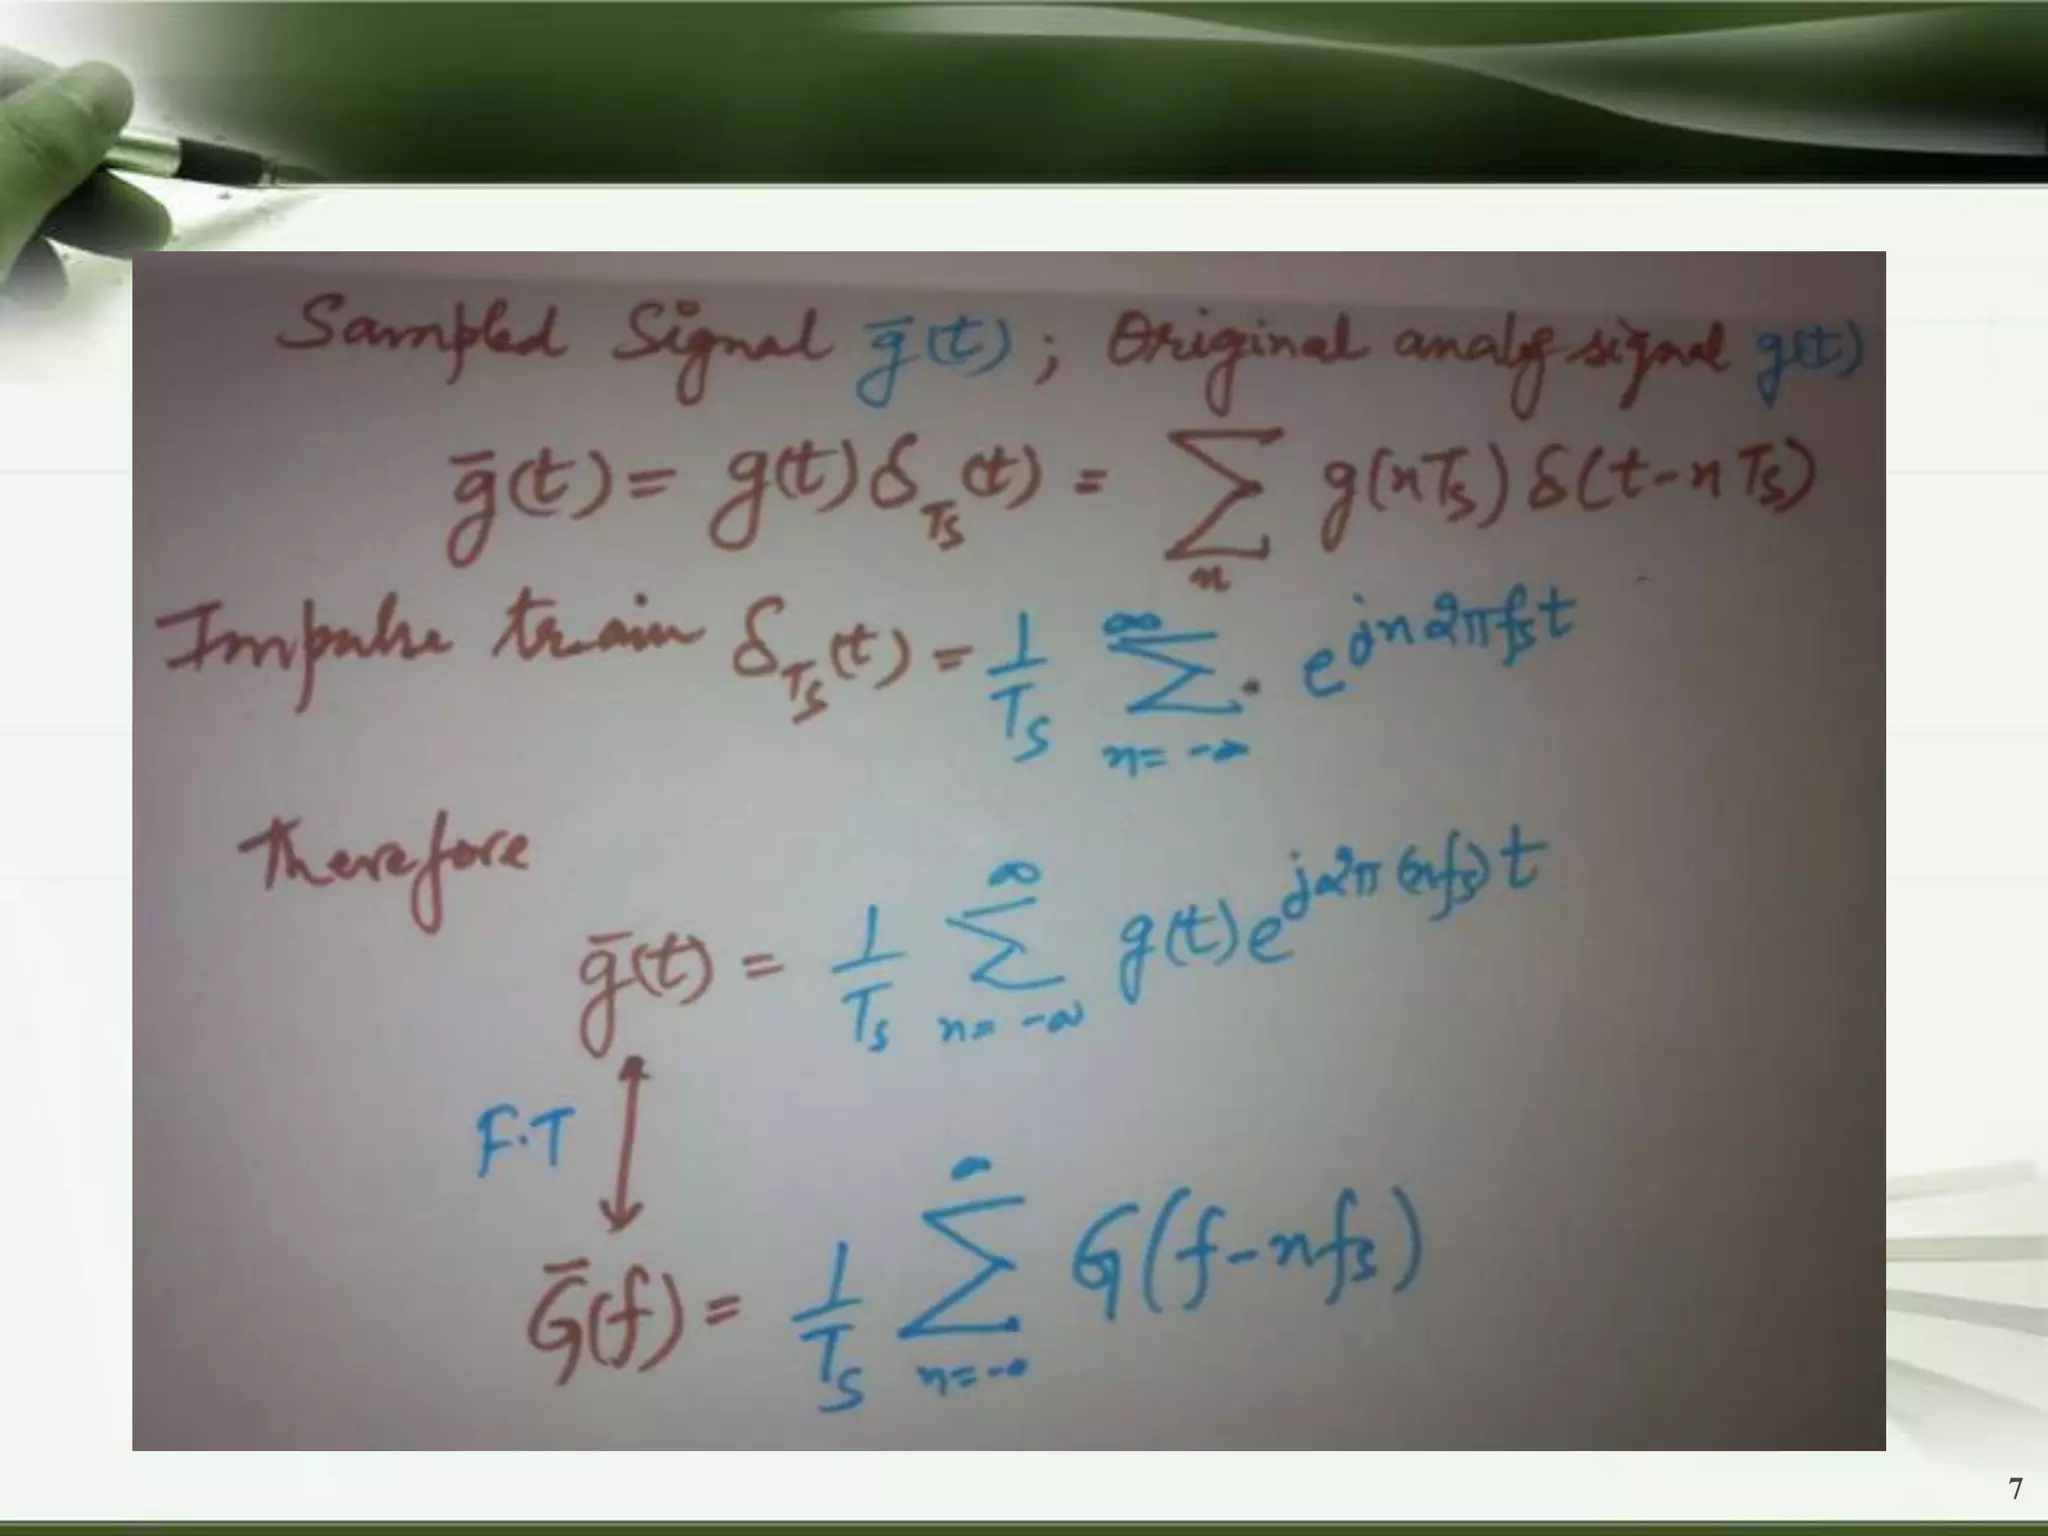 Sampled Signal g̅(t) ; Original analog signal g(t)
g̅(t) = g(t) δ_Ts(t) = ∑_n g(nTs) δ(t-nTs)
Impulse train δ_Ts(t) = 1/Ts ∑_{n=-∞}^{∞} e^{jn2πfst}
Therefore
g̅(t) = 1/Ts ∑_{n=-∞}^{∞} g(t) e^{j2π(nfs)t}
F.T
G̅(f) = 1/Ts ∑_{n=-∞}^{∞} G(f-nfs)
7